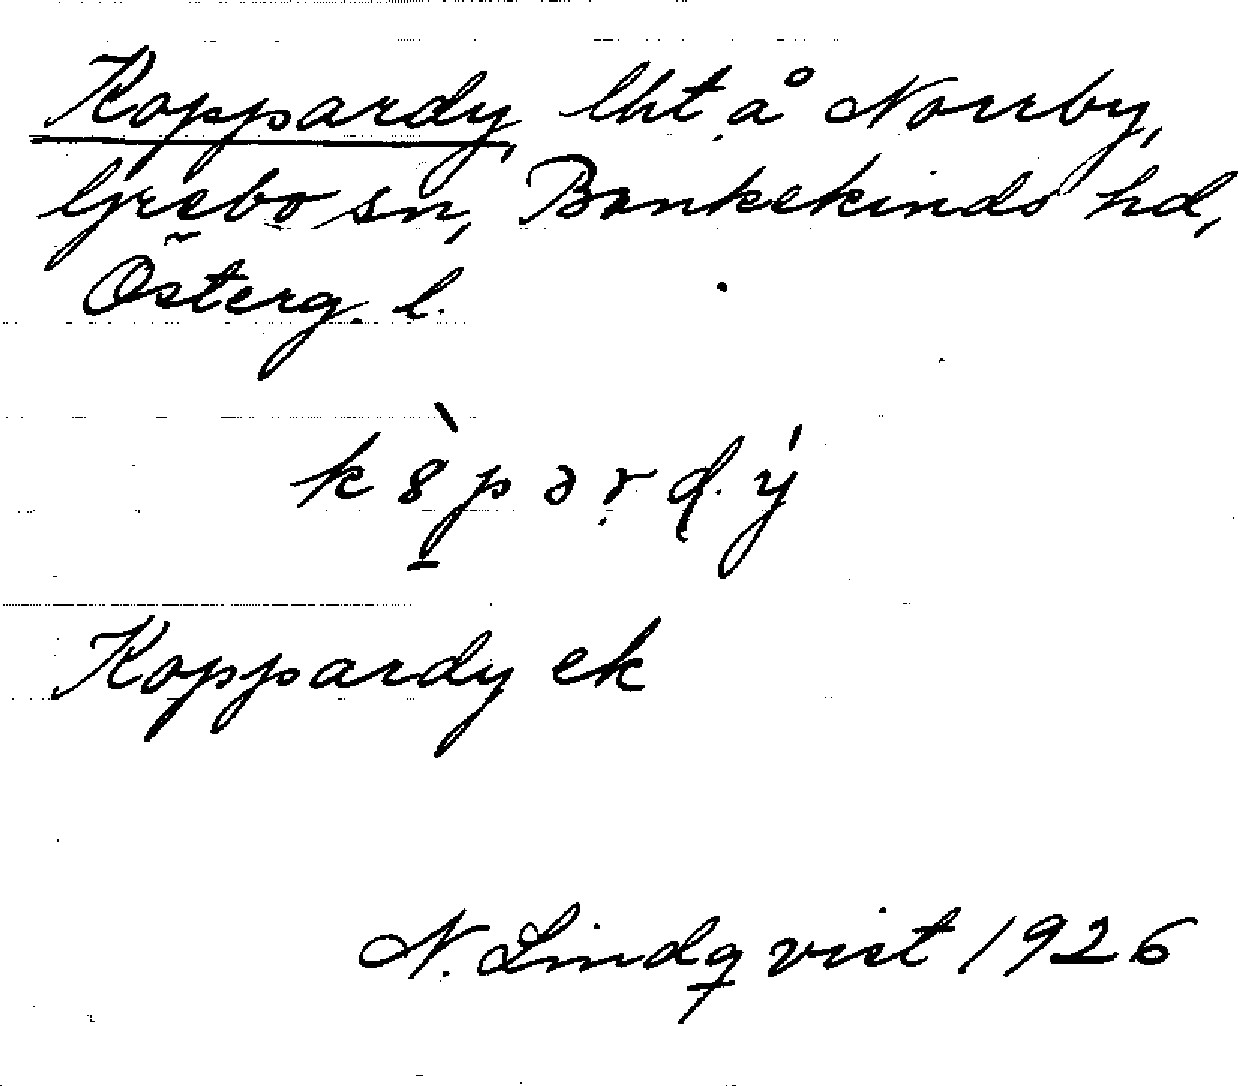 Koppardy, lht å Norrby,
Grebo sn, Bankekinds hd,
Österg. l.
Koppardy ek
N. Lindqvist 1926